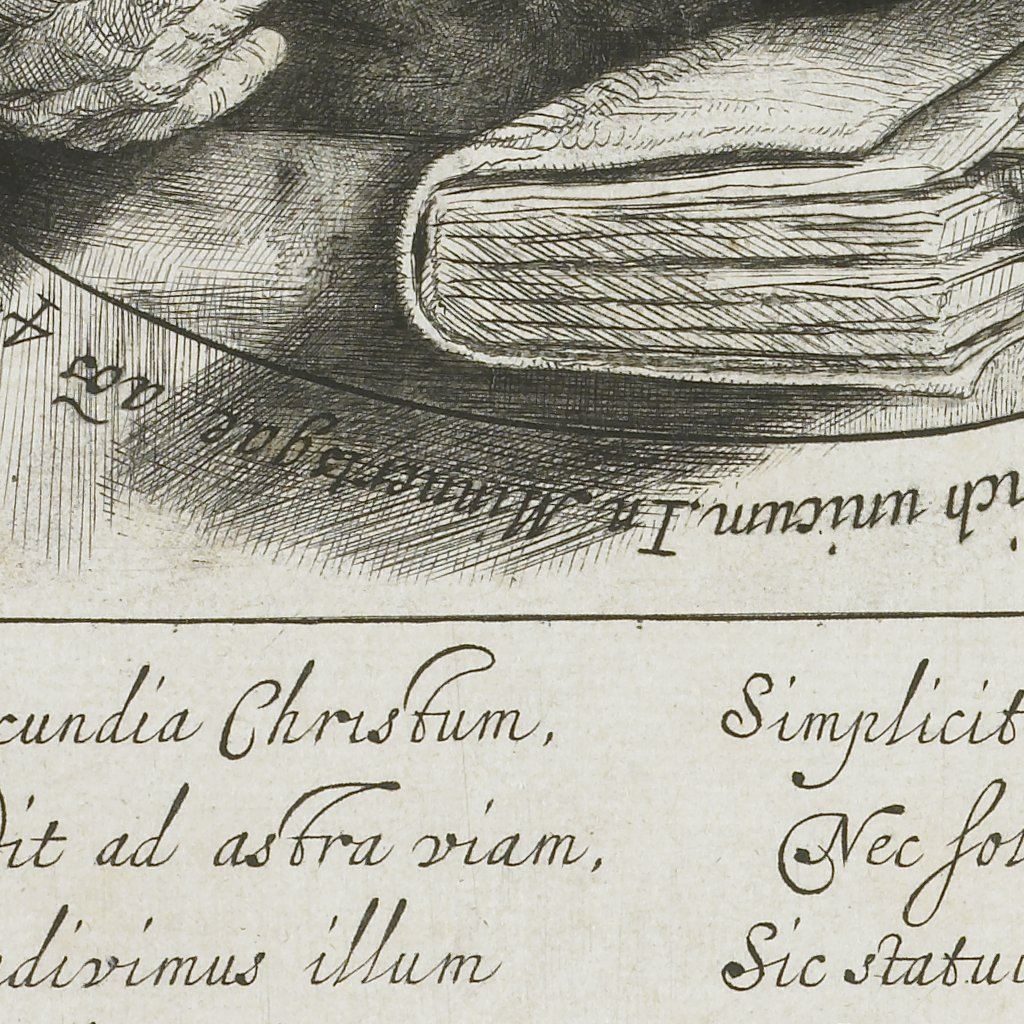 ich unicum. In Minnertsgae
cundia Christum,
dit ad astra viam,
edivimus illum
Simplicit
Nec sol
Sic statui